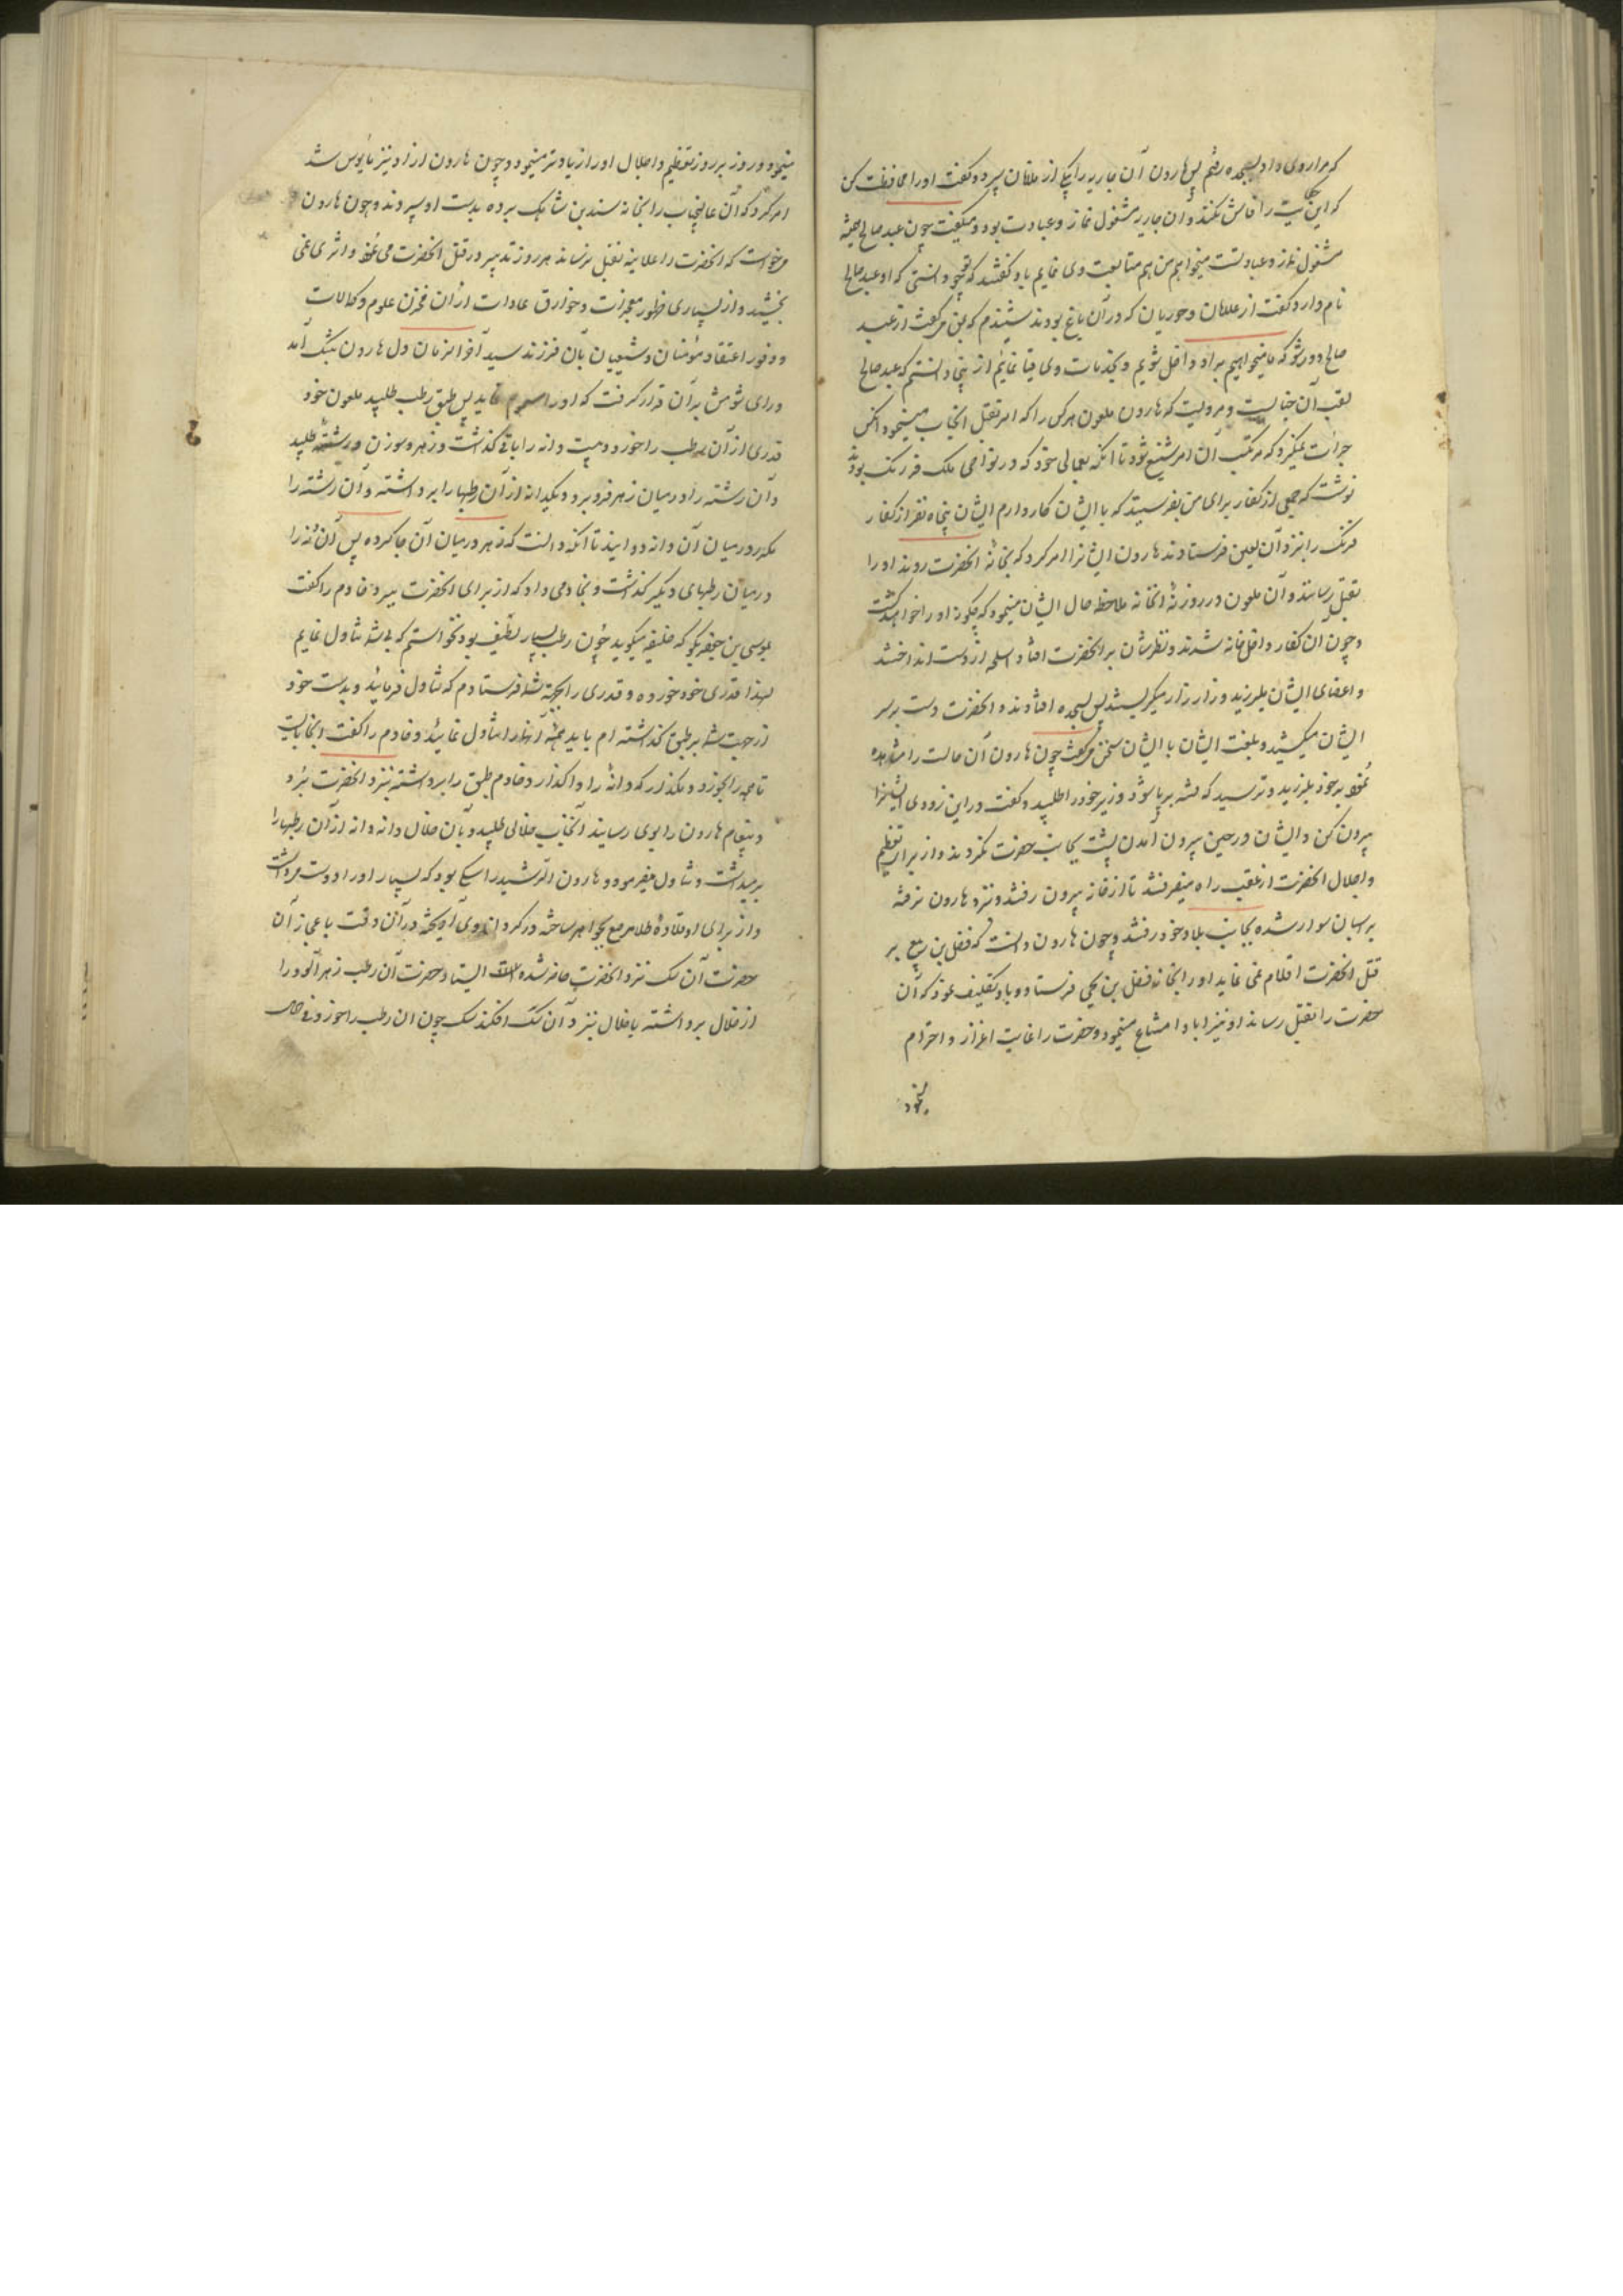 که مرا روی داد بسجده رفتم پس هارون آن جاریه را بیکی از ملازمان سپرد و گفت او را محافظت کن
که این حکایت را فاش نکند و آن جاریه مشغول نماز و عبادت بود و میگفت چون عبد صالح همیشه
مشغول نماز و عبادتست میخواهم من هم متابعت وی نمایم باو گفتند که تو چه دانستی که او عبد صالح
نام دارد گفت از غلامان و حوریان که در آن باغ بودند شنیدم که بمن میگفتند از عبد
صالح دور شو که ما میخواهیم بر او داخل شویم و بخدمات وی قیام نمائیم از اینجا دانستم که عبد صالح
لقب آن جنابست و مرویست که هارون ملعون هر کس را که امر بقتل آنجناب مینمود آنکس
جرات نمیکرد که مرتکب آن امر شنیع شود تا آنکه بعمال خود که در نواحی ملک فرنگ بودند
نوشت که جمعی از کفار برای من بفرستید که با ایشان کار دارم ایشان پنجاه نفر از کفار
فرنگ را بنزد آن لعین فرستادند هارون ایشانرا امر کرد که بخانه آنحضرت روند او را
بقتل رسانند و آن ملعون در روزنه آنخانه ملاحظه حال ایشان مینمود که چگونه او را خواهند کشت
و چون آن کفار داخل خانه شدند و نظرشان بر آنحضرت افتاد اسلحه از دست انداختند
و اعضای ایشان بلرزید و زار زار میگریستند پس بسجده افتادند و آنحضرت دست بر سر
ایشان میکشید و بلغت ایشان با ایشان سخن میگفت چون هارون آن حالت را مشاهده
نمود بر خود بلرزید و ترسید که فتنه برپا شود وزیر خود را طلبید و گفت در این زودی ایشانرا
بیرون کن و ایشان در حین بیرون آمدن پشت بجانب حضرت نکردند و از برای تعظیم
و اجلال آنحضرت از عقب راه میرفتند تا از خانه بیرون رفتند و نزد هارون نرفته
بر اسبان سوار شده بجانب بلاد خود رفتند و چون هارون دانست که فضل بن ربیع بر
قتل آنحضرت اقدام نمی نماید او را بخانه فضل بن یحیی فرستاد و باو تکلیف نمود که آن
حضرت را بقتل رساند او نیز ابا و امتناع مینمود و حضرت را غایت اعزاز و احترام
مینمود و روز بروز تعظیم و اجلال او را زیادتر مینمود و چون هارون از او نیز مأیوس شد
امر کرد که آن عالیجناب را بخانه سندی بن شاهک برده بدست او سپردند و چون هارون
میخواست که آنحضرت را علانیه بقتل نرساند هر روز تدبیر در قتل آنحضرت می نمود و اثری نمی
بخشید و از بسیاری ظهور معجزات و خوارق عادات از آن مخزن علوم و کمالات
و وفور اعتقاد مؤمنان و شیعیان بآن فرزند سید آخر الزمان دل هارون بتنگ آمد
و رای شومش بر آن قرار گرفت که او را مسموم نماید پس طبق رطب طلبید ملعون خود
قدری از آن رطب را خورد و بیست دانه را باقی گذاشت و زهر و سوزن و رشته طلبید
و آن رشته را در میان زهر فرو برد و یکدانه از آن رطبها را برداشته و آن رشته را
مکرر در میان آن دانه دوانید تا آنکه دانست که زهر در میان آن جا کرده پس آن دانه را
در میان رطبهای دیگر گذاشت و بخادمی داد که از برای آنحضرت ببرد خادم را گفت
بموسی بن جعفر بگو که خلیفه میگوید چون رطب بسیار لطیف بود نخواستم که بی شما تناول نمایم
لهذا قدری خود خورده و قدری را بجهت شما فرستادم که تناول فرمائید و بدست خود
از جهت شما بر طبق گذاشته ام باید همه آنها را تناول نمائید و خادم را گفت آنجا بایست
تا همه را بخورد و مگذار که دانه را واگذارد خادم طبق را برداشته بنزد آنحضرت برد
و پیغام هارون را بوی رسانید آنجناب خلالی طلبید و بآن خلال دانه دانه از آن رطبها را
برمیداشت و تناول میفرمود و هارون الرشید را سگی بود که بسیار او را دوست میداشت
و از برای او قلاده طلا مرصع بجواهر ساخته در گردن وی آویخته در آن وقت باعجاز آن
حضرت آن سگ نزد آنحضرت حاضر شده ایستاد حضرت آن رطب زهر آلود را
از خلال برداشته با خلال بنزد آن سگ افکند سگ چون آن رطب را خورد فی الحال